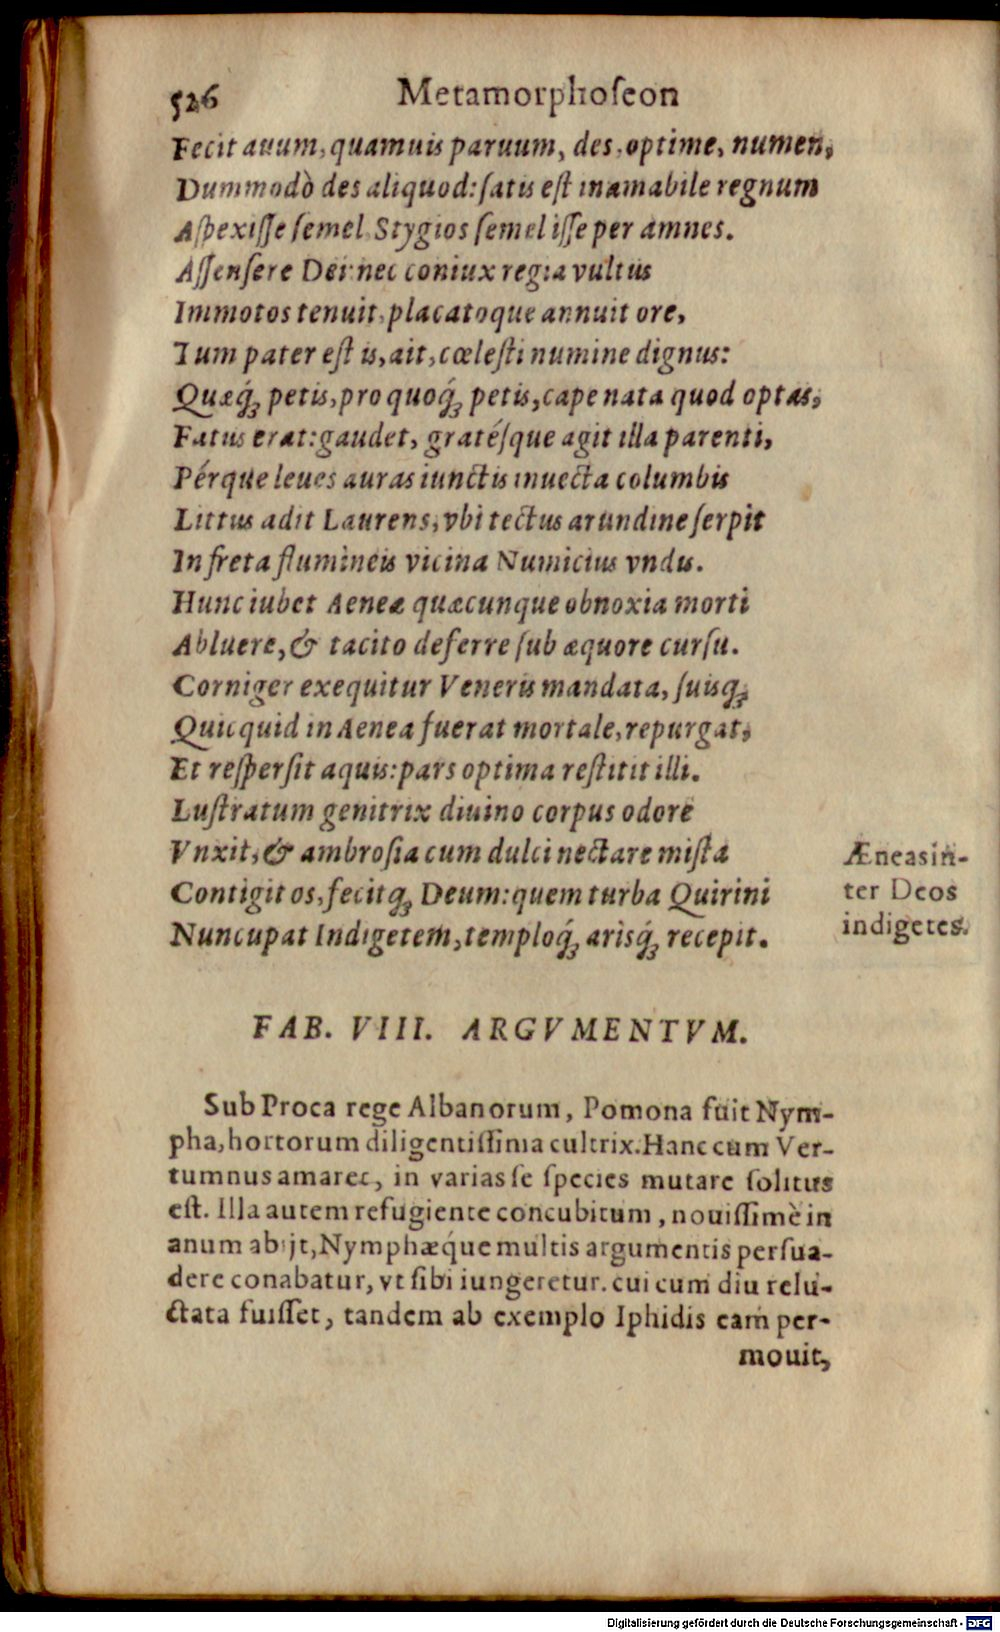 526 Metamorphoſeon
Fecit auum, quamuis paruum, des, optime, numen,
Dummodò des aliquod: ſatis eſt inamabile regnum
Aſpexiſſe ſemel, Stygios ſemel iſſe per amnes.
Aſſenſere Dei: nec coniux regia vultus
Immotos tenuit, placatoque annuit ore,
Tum pater eſt is, ait, cœleſti numine dignus:
Quæq́ꝫ petis, pro quoq́ꝫ petis, cape nata quod optas,
Fatus erat: gaudet, gratéſque agit illa parenti,
Pérque leues auras iunctis inuecta columbis
Littus adit Laurens, vbi tectus arundine ſerpit
In freta flumineis vicina Numicius vndis.
Hunc iubet Aeneæ quæcunque obnoxia morti
Abluere, & tacito deferre ſub æquore curſu.
Corniger exequitur Veneris mandata, ſuisqꝫ
Quicquid in Aenea fuerat mortale, repurgat,
Et reſperſit aquis: pars optima reſtitit illi.
Luſtratum genitrix diuino corpus odore
Vnxit, & ambroſia cum dulci nectare miſta
Contigit os, fecitqꝫ Deum: quem turba Quirini
Nuncupat Indigetem, temploq́ꝫ arisq́ꝫ recepit.
Æneas in-
ter Deos
indigetes.
FAB. VIII. ARGVMENTVM.
Sub Proca rege Albanorum, Pomona fuit Nym-
pha, hortorum diligentiſſima cultrix. Hanc cum Ver-
tumnus amaret, in varias ſe ſpecies mutare ſolitus
eſt. Illa autem refugiente concubitum, nouiſſimè in
anum abijt, Nymphæq́ue multis argumentis perſua-
dere conabatur, vt ſibi iungeretur. cui cum diu relu-
ctata fuiſſet, tandem ab exemplo Iphidis eam per-
mouit,
Digitalisierung gefördert durch die Deutsche Forschungsgemeinschaft - DFG